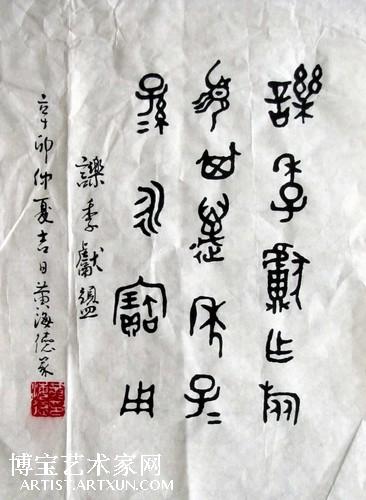 季獻乍旅
須其萬年子=
孫=永寶用
季獻盨
辛卯仲夏吉日黄海德篆
博宝艺术家网
ARTIST.ARTXUN.COM